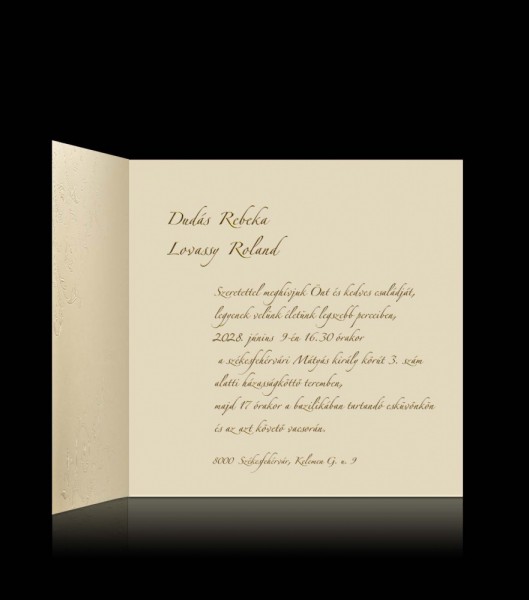 Dudás Rebeka
Lovassy Roland
Szeretettel meghívjuk Önt és kedves családját,
legyenek velünk életünk legszebb perceiben,
2028. június 9-én 16.30 órakor
a székesfehérvári Mátyás király körút 3. szám
alatti házasságkötő teremben,
majd 17 órakor a bazilikában tartandó esküvőnkön
és az azt követő vacsorán.
8000 Székesfehérvár, Kelemen G. u. 9